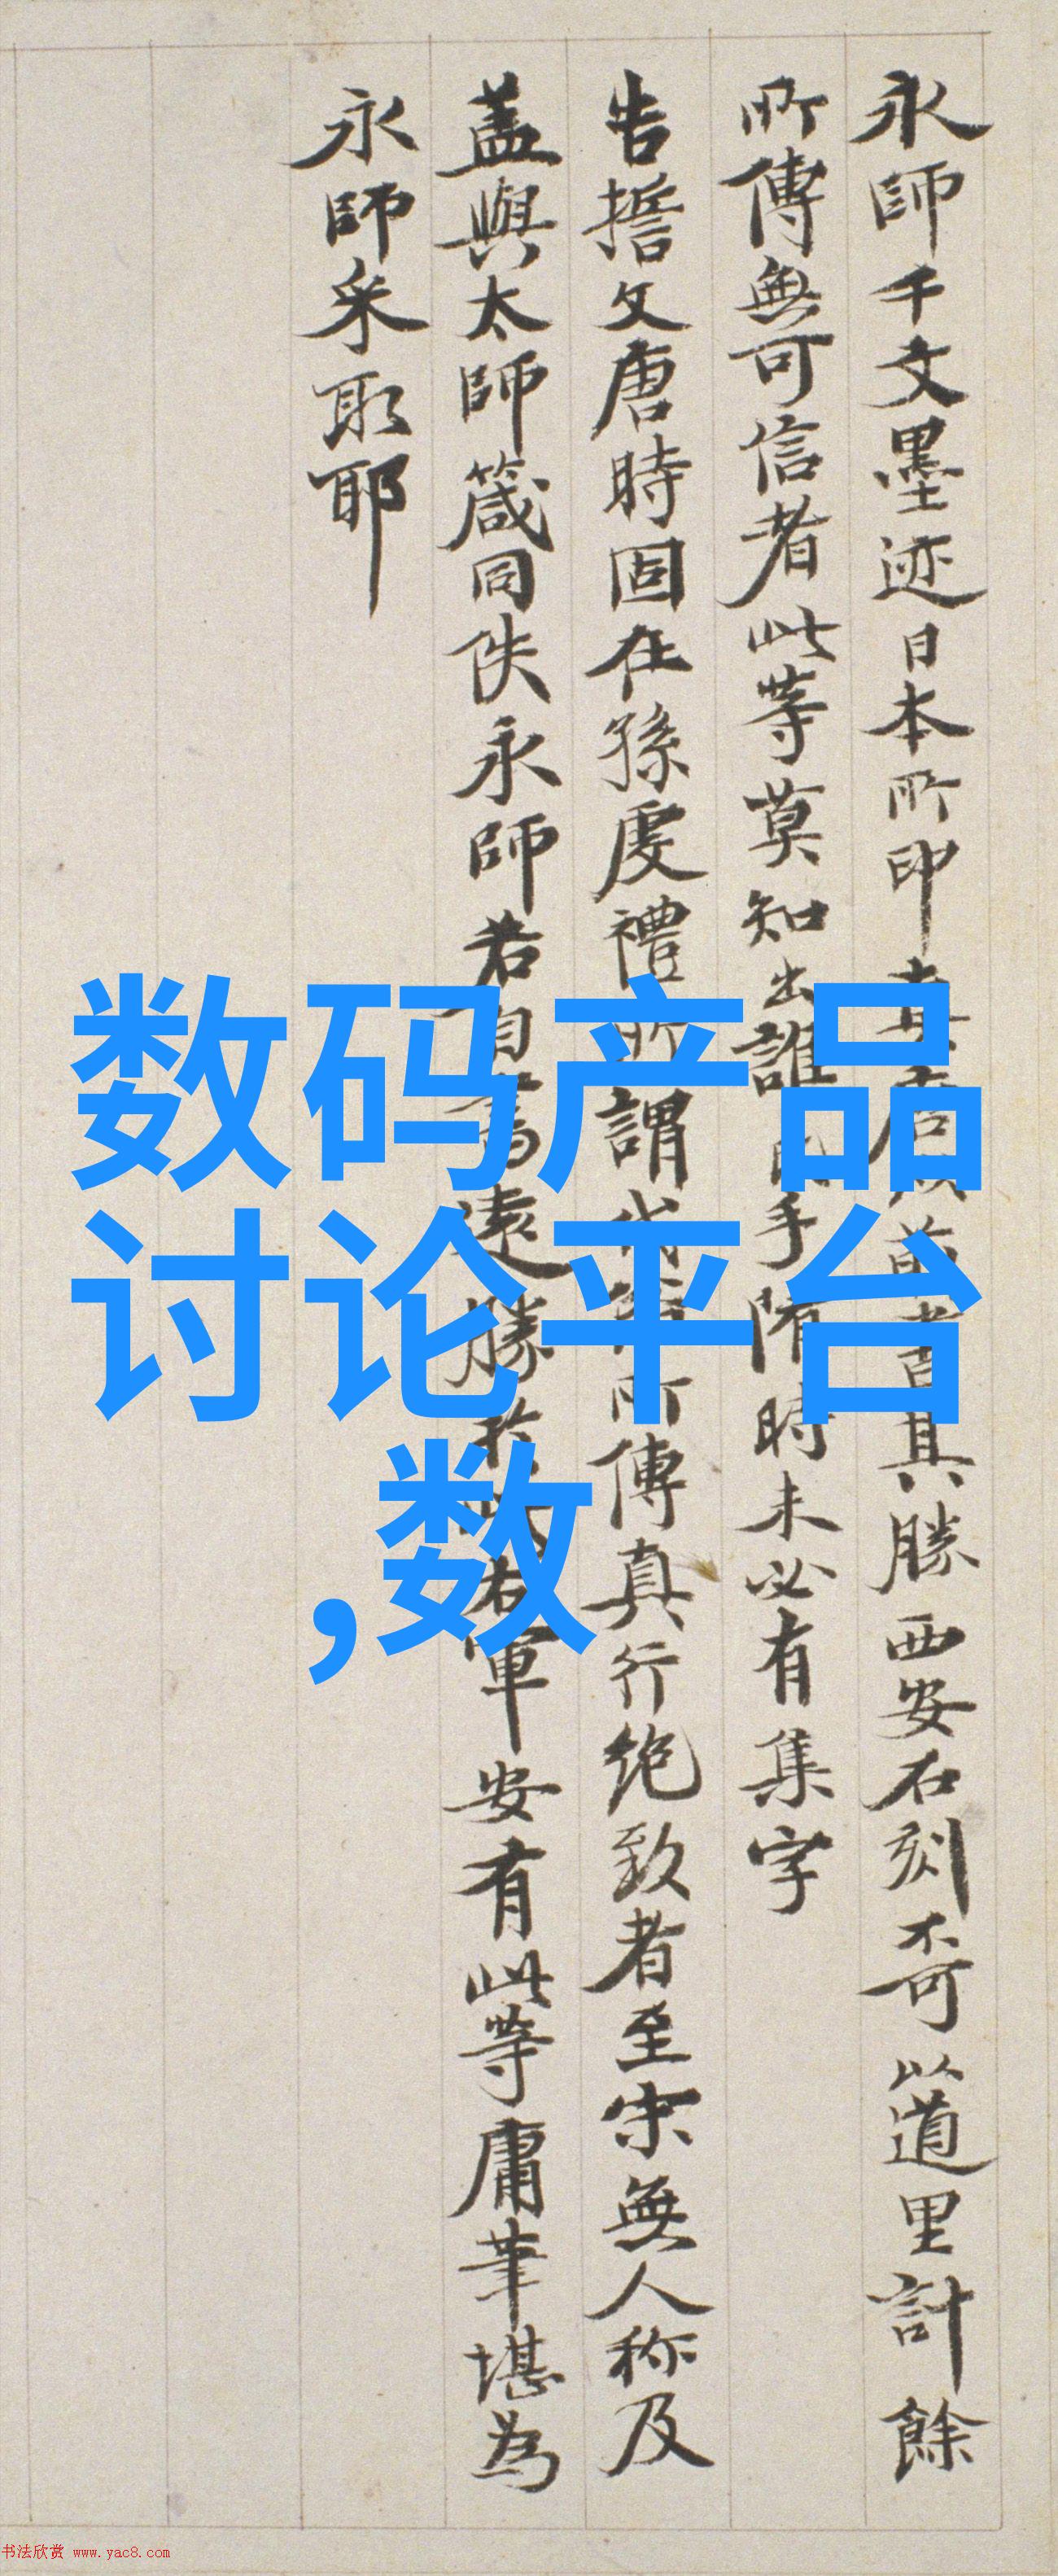 永師千文墨迹日本所印真
勝西安石刻不可以道里計餘
所傳無可信者此等莫知出誰
手隋時未必有集字
告摿文唐時固在孫虔禮所謂
所傳真行絶致者至宋無人称及
盖與太師箴同佚永師若自書遠勝
右軍安有此等庸筆堪為
永師采取耶
数码产品
讨论平台
,数
书法欣赏 www.yac8.com